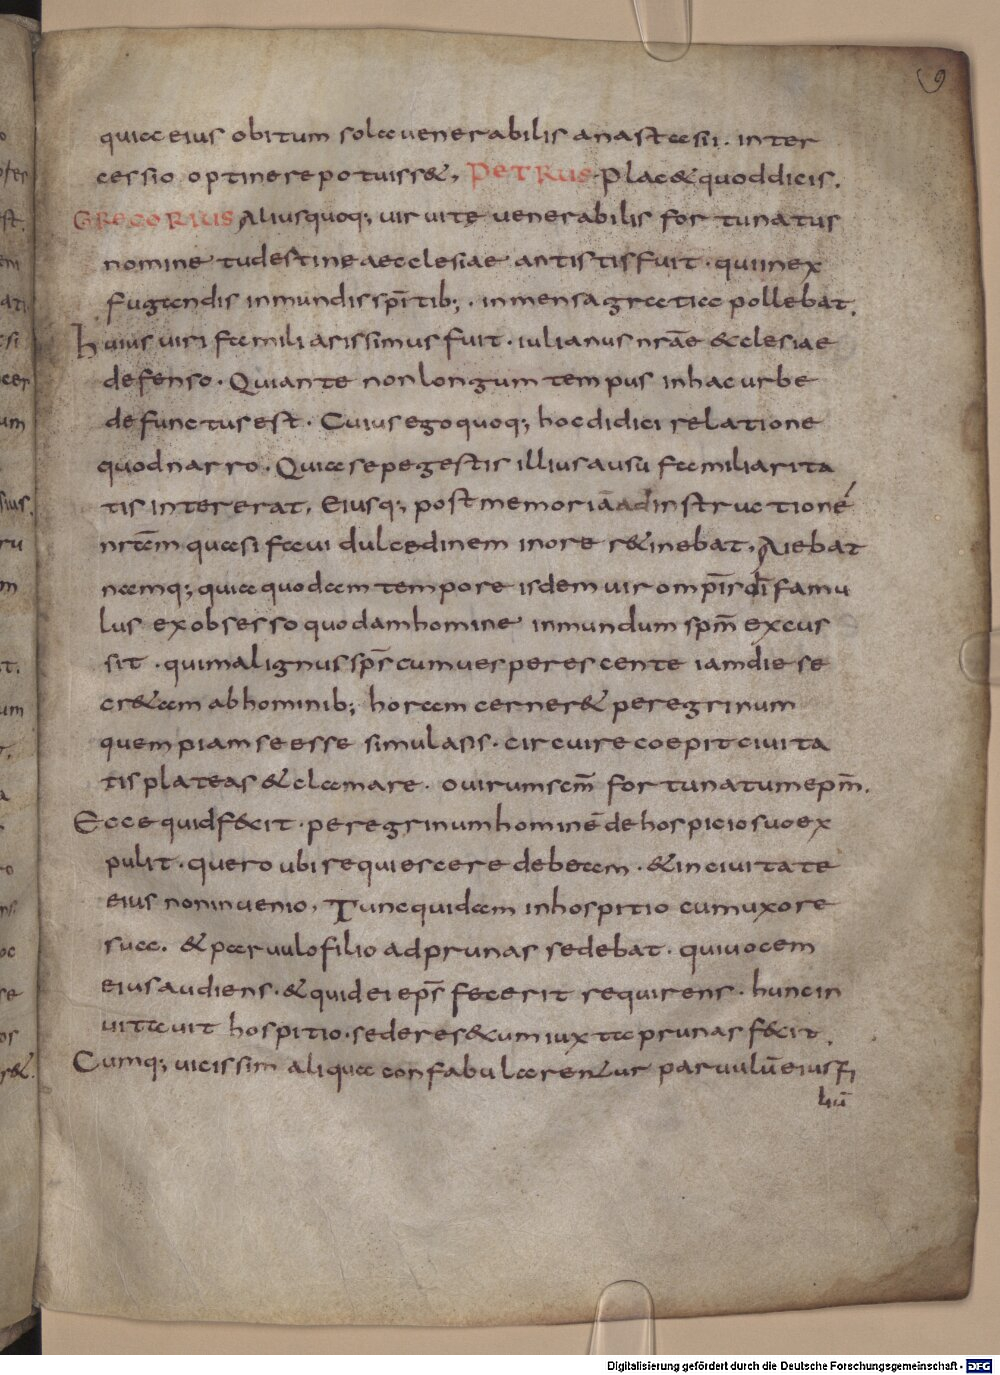 9
quia eius obitum sola uenerabilis anastasii. inter
cessio optinere potuiss&, PETRUS Plac& quod dicis.
GREGORIUS Aliusquoq; uir uite uenerabilis fortunatus
nomine tudestine aecclesiae antistis fuit. qui inex
fugandis inmundis sp̄itib;. inmensa gratia pollebat.
huius uiri familiarissimus fuit. iulianus nr̄ae &clesiae
defenso. Qui ante non longum tempus inhac urbe
defunctus est. Cuius ego quoq; hoc didici relatione
quod narro. Quia sepe gestis illius ausu familiarita
tis intererat, Eiusq; post memoriā ad instructionē
nr̄am quasi faui dulcedinem inore r&inebat, Aiebat
namq; quia quodam tempore isdem uir omp̄r dī famu
lus ex obsesso quodam homine inmundum sp̄m excus
sit. qui malignus sp̄s cum uesperescente iam die se
cr&am ab hominib; horam cerner& peregrinum
quempiam se esse simulasis. circuire coepit ciuita
tis plateas & clamare. o uirum scm̄ fortunatum ep̄m.
Ecce quid f&cit. peregrinum hominē de hospicio suo ex
pulit. quero ubi requiescere debeam. & in ciuitate
eius non inuenio, Tunc quidam in hospitio cum uxore
sua. & paruulo filio ad prunas sedebat. qui uocem
eius audiens. & quid ei ep̄s fecerit requirens. hunc in
uitauit hospitio. seder& secum iuxta prunas f&cit.
Cumq; uicissim aliqua confabularentur paruulū eius fi
liū
Digitalisierung gefördert durch die Deutsche Forschungsgemeinschaft - DFG